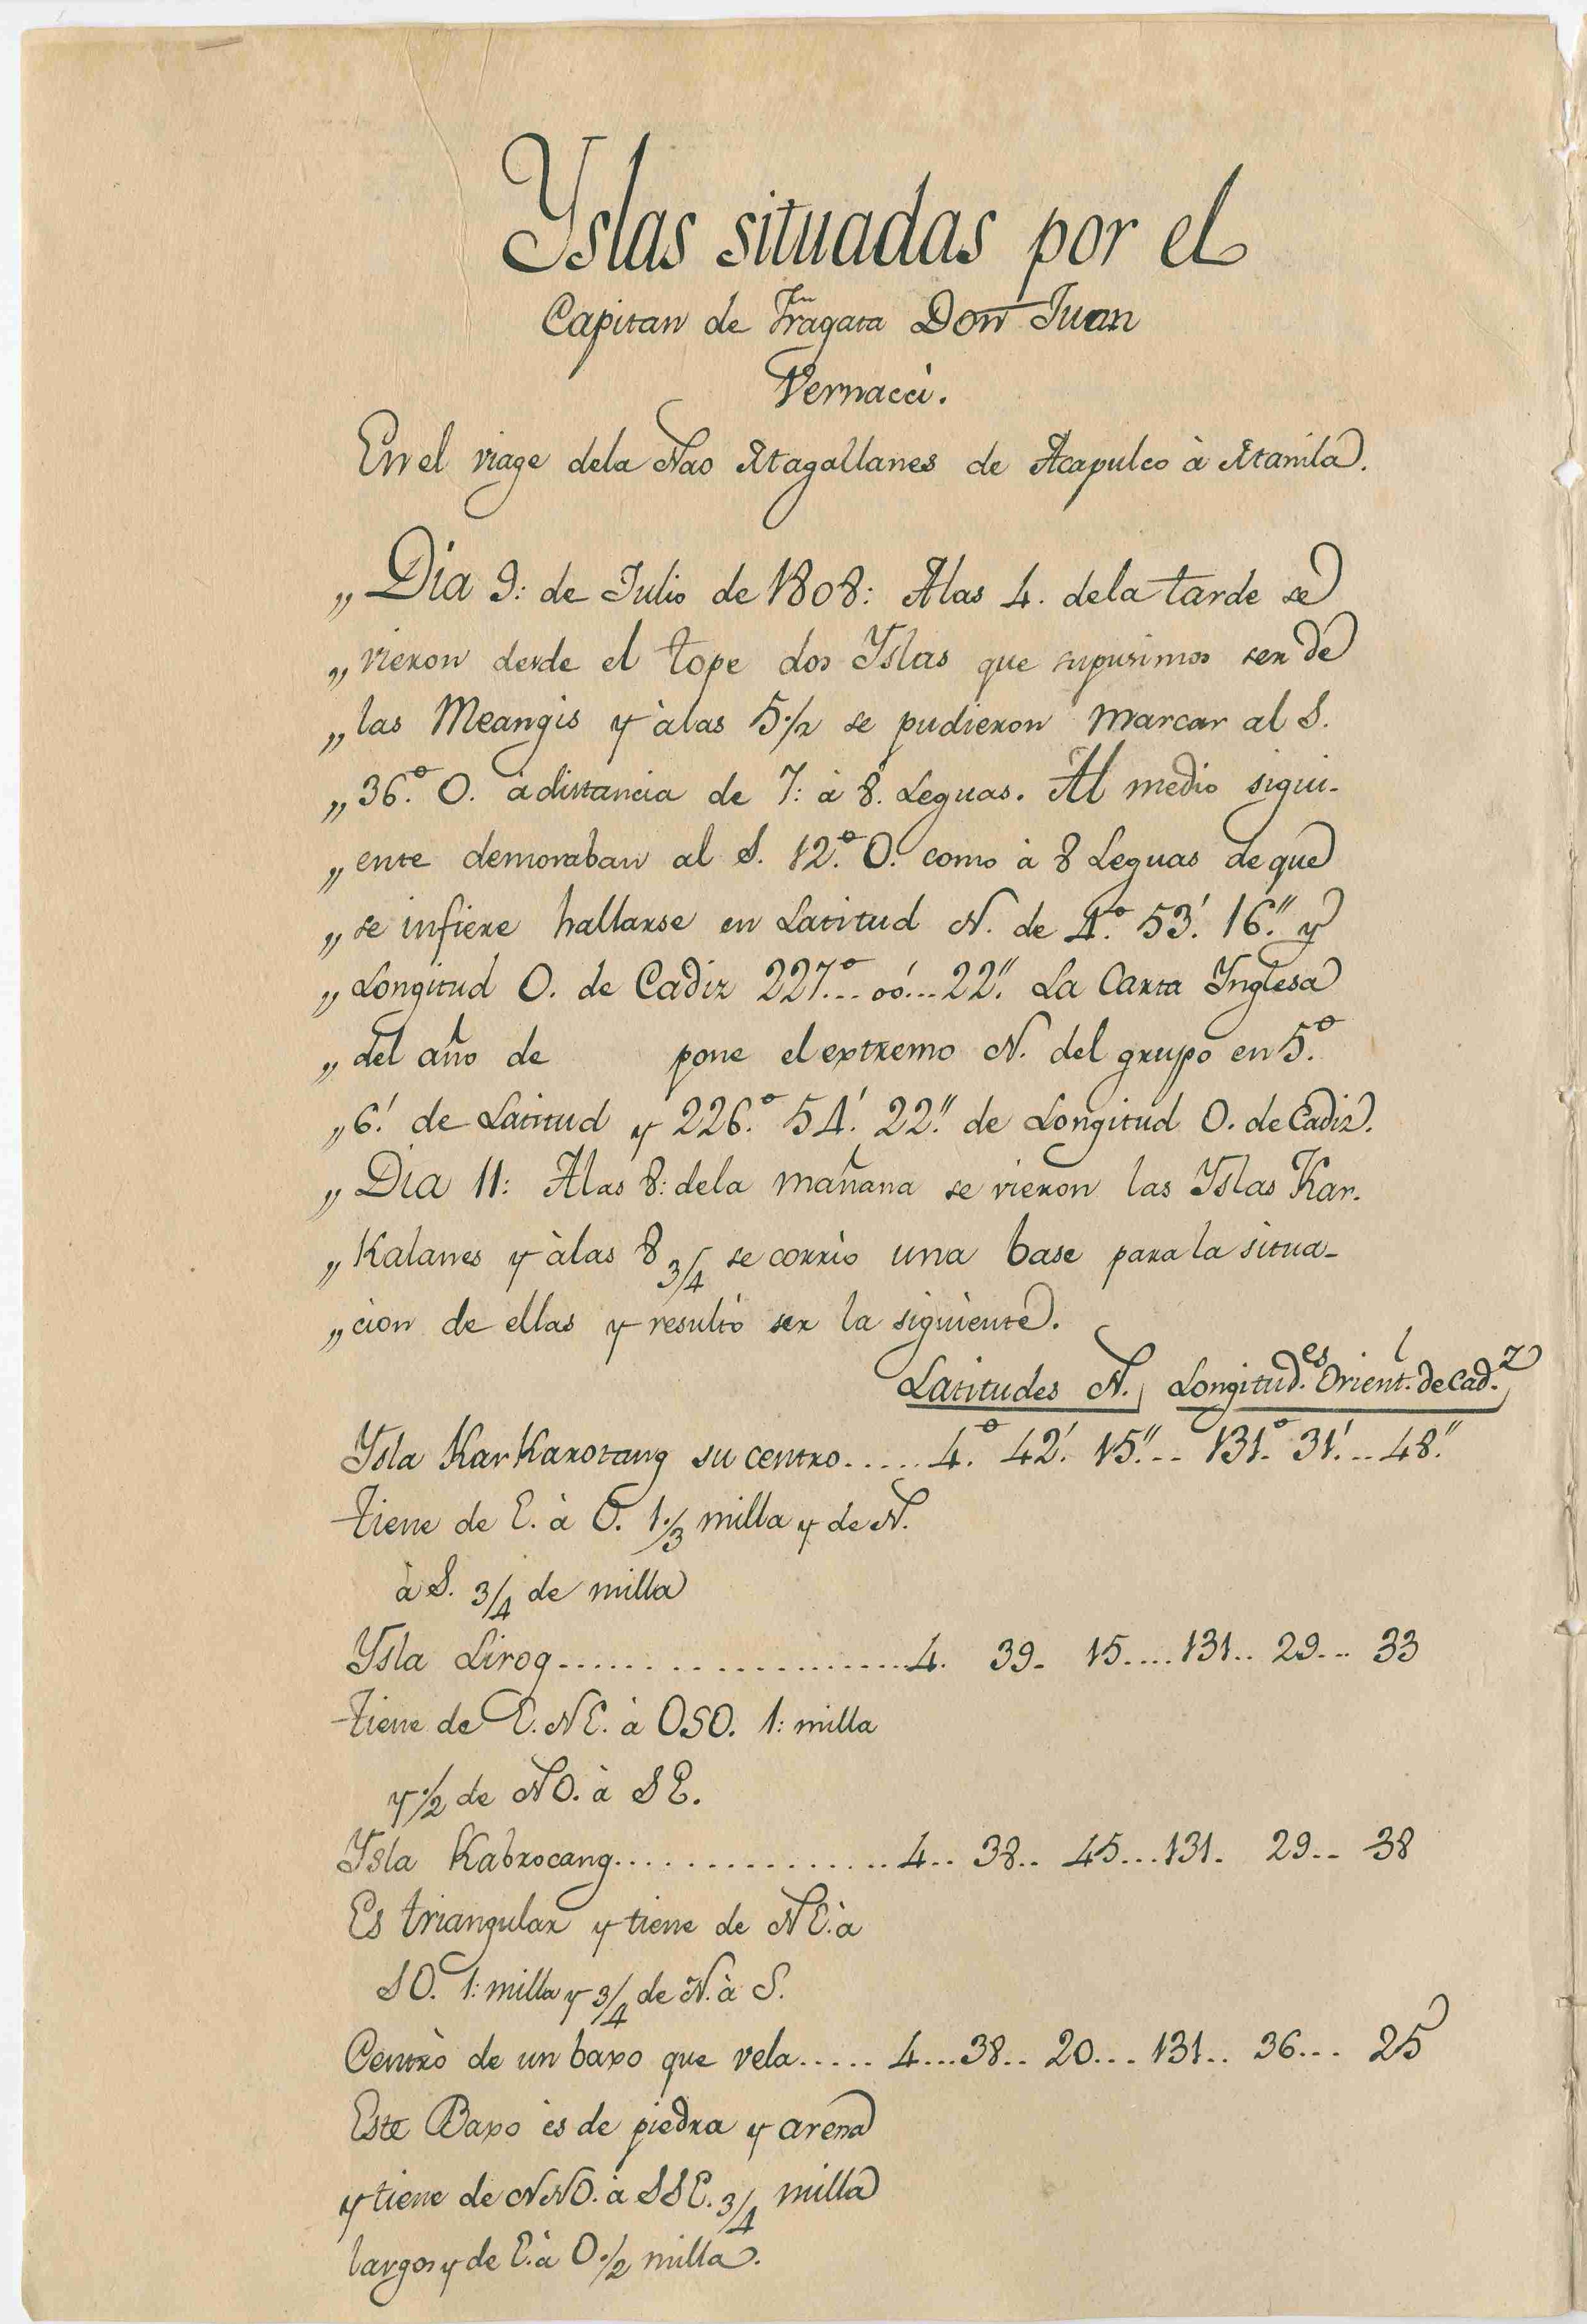 Yslas situadas por el
Capitan de Fragata Don Juan
Vernacci.
En el viage dela Nao Magallanes de Acapulco à Manila.
„ Dia 9: de Julio de 1808: Alas 4. dela tarde se
„ vieron desde el tope dos Yslas que supusimos ser de
„ las Meangis y àlas 5 1/2 se pudieron marcar al S.
„ 36.° O. à distancia de 7: à 8. Leguas. Al medio sigui-
„ ente demoraban al S. 12.° O. como à 8 Leguas de que
„ se infiere hallarse en Latitud N. de 4.° 53.' 16." y
„ Longitud O. de Cadiz 227.°... 00.'... 22." La Carta Ynglesa
„ del año de pone el extremo N. del grupo en 5.°
„ 6.' de Latitud y 226.° 54.' 22." de Longitud O. de Cadiz.
„ Dia 11: Alas 8: dela mañana se vieron las Yslas Kar-
„ Kalanes y àlas 8 3/4 se corrio una base para la situa-
„ cion de ellas y resultò ser la siguiente.
Latitudes N. Longitud.es Orient.l de Cad.z
Ysla KarKarotang su centro..... 4.° 42.' 15."... 131.° 31.'... 48."
tiene de E. à O. 1 1/3 milla y de N.
à S. 3/4 de milla
Ysla Lirog..................... 4. 39. 15.... 131.. 29... 33
tiene de E.NE. à OSO. 1: milla
y 1/2 de NO. à SE.
Ysla Kabrocang................ 4.. 38.. 45... 131. 29.. 38
Es triangular y tiene de NE. à
SO. 1: milla y 3/4 de N. à S.
Centro de un baxo que vela..... 4... 38.. 20... 131.. 36... 25
Este Baxo es de piedra y arena
y tiene de NNO. à SSE. 3/4 milla
largos y de E. à O 1/2 milla.